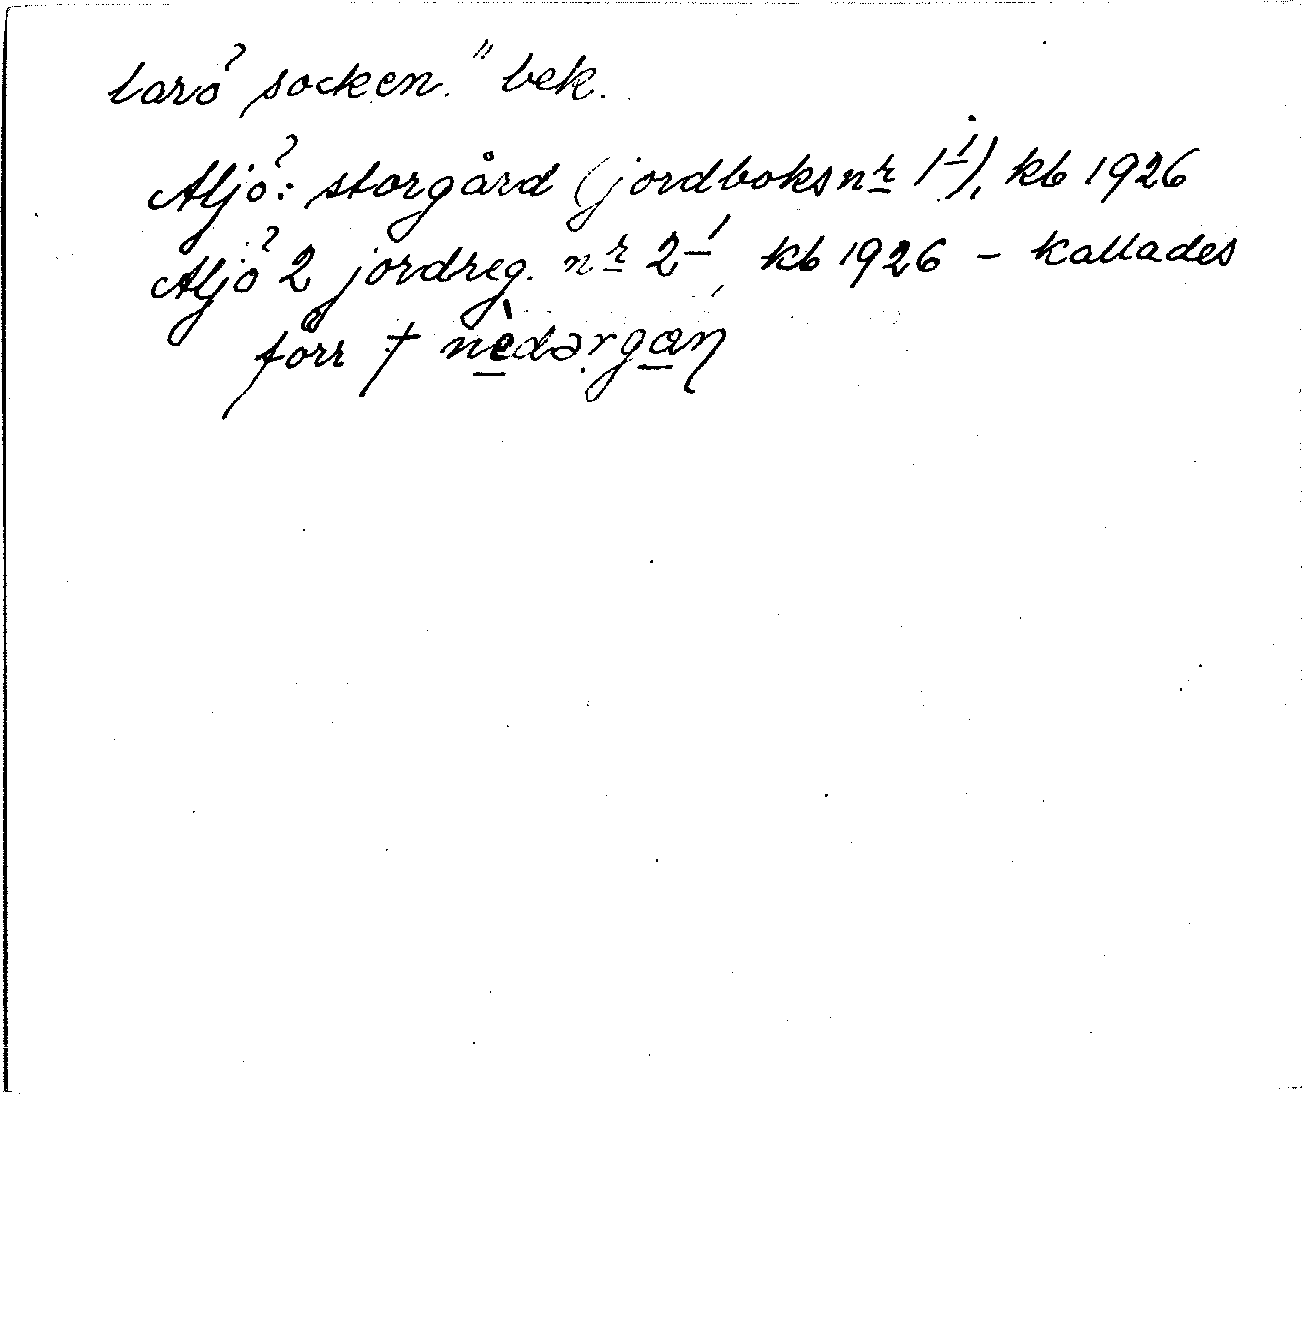 tarö socken." bek.
Aljö: storgård (jordboksnr 1¹), kb 1926
Aljö 2 jordreg. nr 2¹ kb 1926 - kallades
förr † nèdərgan